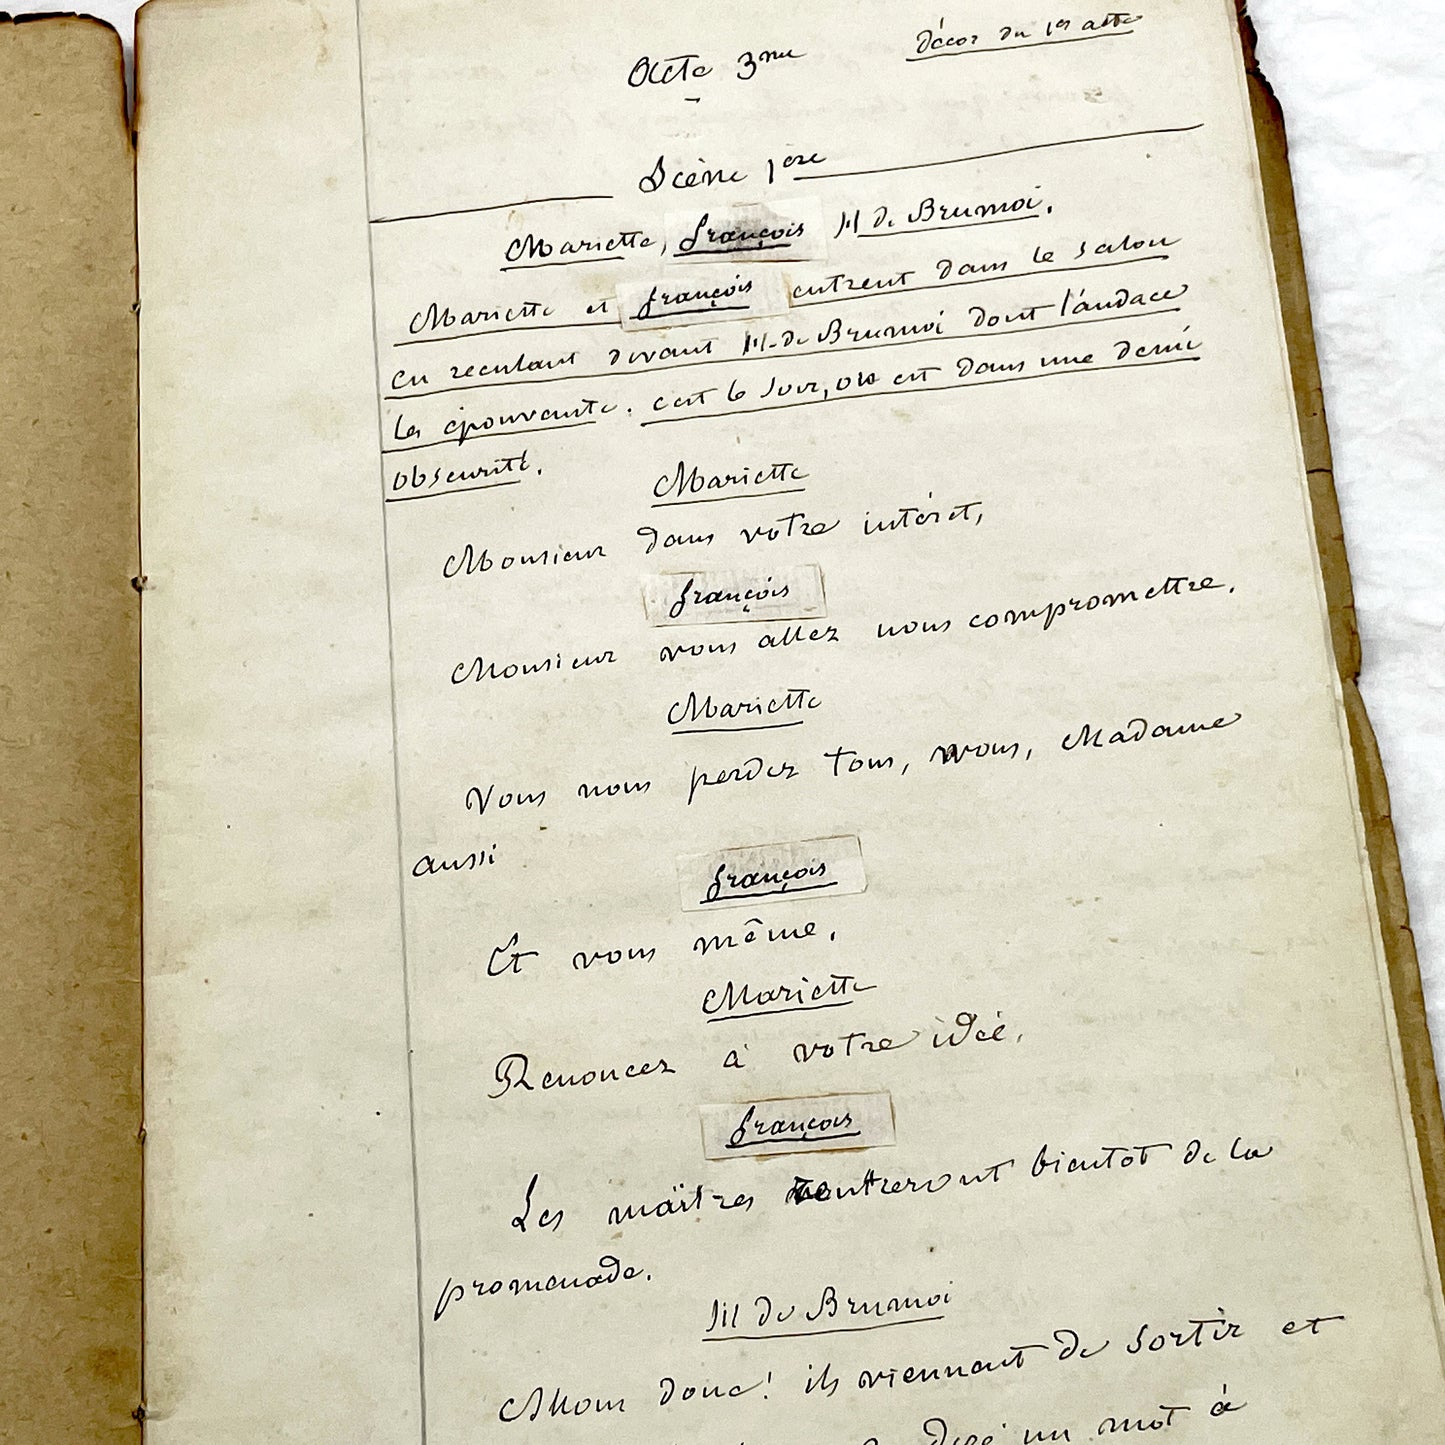 Acte 3me
Décor du 1er acte
Scène 1ere
Mariette, françois M de Brumoi.
Mariette et françois entrent dans le salon
en reculant devant M. de Brumoi dont l'audace
les épouvante. c'est le soir, on est dans une demi
obscurité.
Mariette
Monsieur dans votre intéret,
françois
Monsieur vous allez nous compromettre.
Mariette
Vous nous perdez tous, nous, Madame
aussi
françois
Et vous même.
Mariette
Renoncez à votre idée.
françois
Les maîtres rentreront bientot de la
promenade.
M de Brumoi
Allons donc! ils viennent de sortir et
un mot à